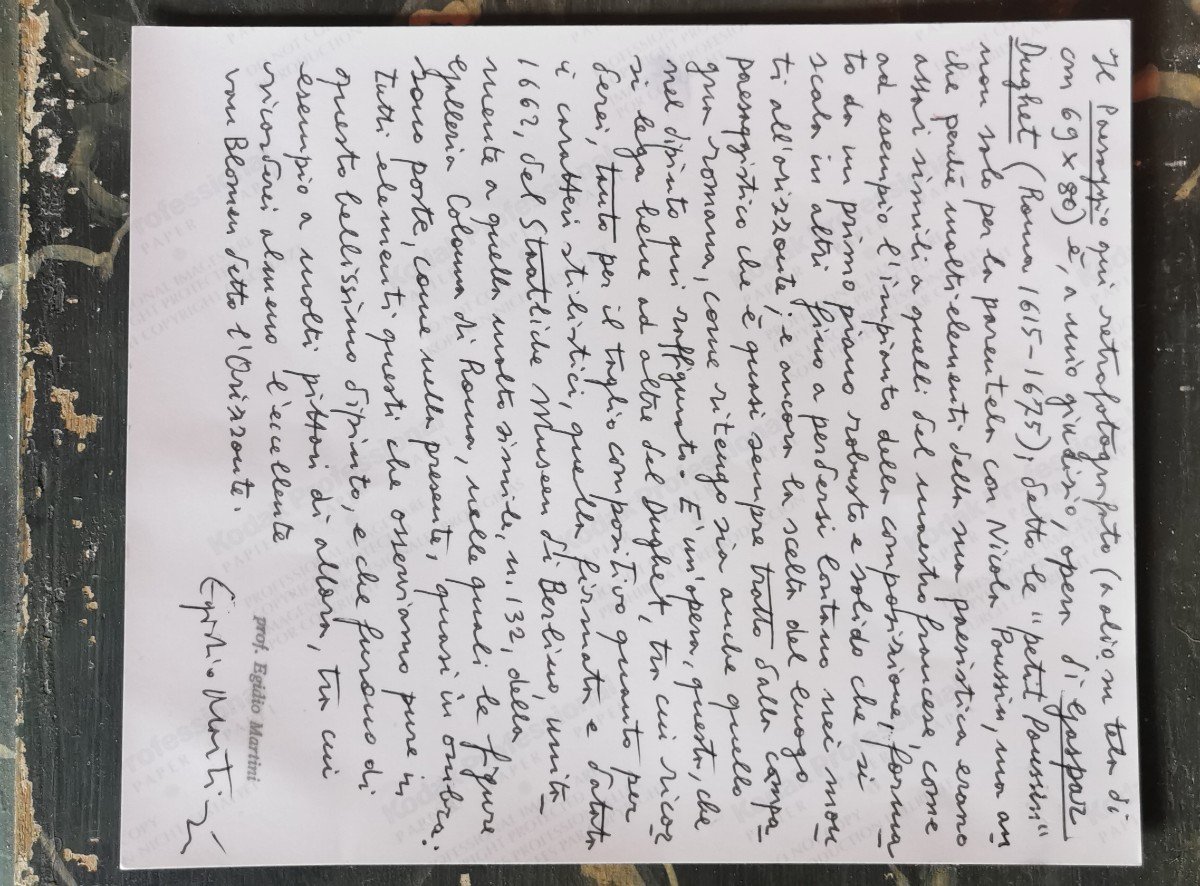 Il Paesaggio qui retrofotografato (a olio su tela di
cm 69 x 88) è, a mio giudizio, opera di Gaspar
Dughet (Roma 1615-1675), detto le "petit Poussin"
non solo per la parentela con Nicola Poussin, ma an
che perché molti elementi della sua paesistica erano
assai simili a quelli del maestro francese, come
ad esempio l'impianto della composizione, forma
to da un primo piano robusto e solido che si
scala in altri fino a perdersi lontano nei mon
ti all'orizzonte; e ancora la scelta del luogo
paesaggistico che è quasi sempre tratto dalla campa
gna romana, come ritengo sia anche quello
nel dipinto qui raffigurato. È un'opera, questa, che
si lega bene ad altre del Dughet, tra cui ricor
derei, tanto per il taglio compositivo quanto per
i caratteri stilistici, quella firmata e datata
1662, del Staatliche Museen di Berlino, unita
mente a quella molto simile, n. 132, della
Galleria Colonna di Roma, nelle quali le figure
sono poste, come nella presente, quasi in ombra:
tutti elementi questi che osserviamo pure in
questo bellissimo dipinto, e che furono di
esempio a molti pittori di allora, tra cui
ricorderei almeno l'eccellente
van Blomen detto l'Orizzonte.
Egidio Martini
prof. Egidio Martini
Kodak Professional
PAPER